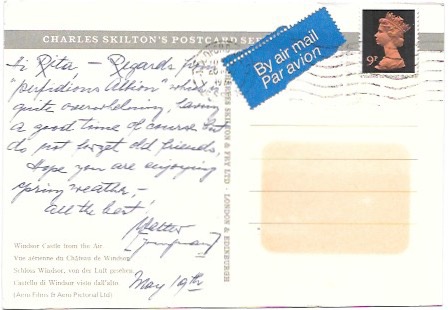 CHARLES SKILTON'S POSTCARD SER
By air mail
Par avion
9P
Hi Rita — Regards from
"perfidious Albion" which is
quite overwhelming, having
a good time of course but
do not forget old friends,
Hope you are enjoying
spring weather, —
All the best!
Walter
May 19th
Windsor Castle from the Air
Vue aérienne du Château de Windsor
Schloss Windsor, von der Luft gesehen
Castello di Windsor visto dall'alto
(Aero Films & Aero Pictorial Ltd)
CHARLES SKILTON & FRY LTD · LONDON & EDINBURGH